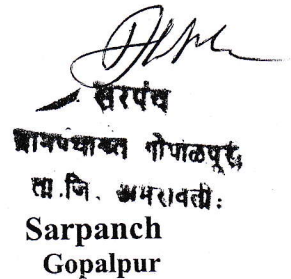 सरपंच
ग्रामपंचायत गोपाळपूर,
ता.जि. अमरावती:
Sarpanch
Gopalpur